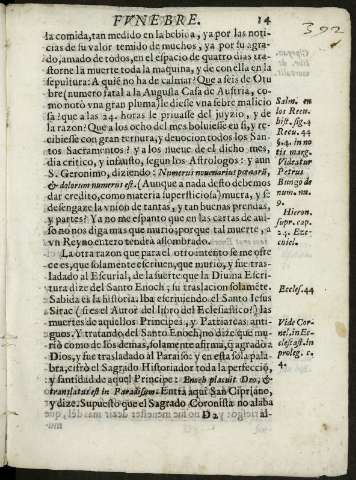 FVNEBRE. 14
392
la comida, tan medido en la bebida, ya por las noti-
cias de su valor temido de muchos, ya por su agra-
do, amado de todos, en el espacio de quatro dias tra-
storne la muerte toda la maquina, y de con ella en la
sepultura? A quiẽ no ha de calmar? Que a seis de Otu
bre (numero fatal a la Augusta Casa de Austria, co-
mo notò vna gran pluma) le diesse vna febre malicio
sa? que a las 24. horas le priuasse del juyzio, y de
la razon? Que a los ocho del mes boluiesse en sí, y re-
cibiesse con gran ternura, y deuocion todos los San-
tos Sacramentos? y a los nueue de el dicho mes,
dia critico, y infausto, segun los Astrologos: y aun
S. Geronimo, diziendo: Numerus nouenarius pœnarũ,
& dolorum numerus est. (Aunque a nada desto debemos
dar credito, como materia supersticiosa) muera, y se
desengaze la vnion de tantas, y tan buenas prendas,
y partes? Ya no me espanto que en las cartas de aui-
so no nos diga mas que murió; porque tal muerte, a
vn Reyno entero tendrà assombrado.
La otra razon que para el otro intento se me ofre
ce es, que solamente escriuen, que murió, y fue tras-
ladado al Escurial, de la suerte que la Diuina Escri-
tura dize del Santo Enoch; su traslacion solamẽte.
Sabida es la historia. Iba escriuiendo el Santo Iesus
Sirac (si es el Autor del libro del Eclesiastico?) las
muertes de aquellos Principes, y Patriarcas anti-
guos. Y tratando del Santo Enoch, no dize que mu-
rió como de los demas, solamente afirma, q̃ agradò a
Dios, y fue trasladado al Paraiso: y en esta sola pala-
bra, cifrò el Sagrado Historiador toda la perfecciõ,
y santidad de aquel Principe: Enoch placuit Deo, &
translatus est in Paradisum. Entra aqui San Cipriano,
y dize. Supuesto que el Sagrado Coronista no alaba
D2 al-
Salm. en
los Recu
bist. sig. 4
Recu. 44
§. 4. in no
tis marg.
Videatur
Petrus
Bungo de
num. nu.
9.
Hieron.
supr. cap.
24. Eze-
chiel.
Eccles. 44
Vide Cor-
nel. in Ec-
cles. ast. in
proleg. c.
4.